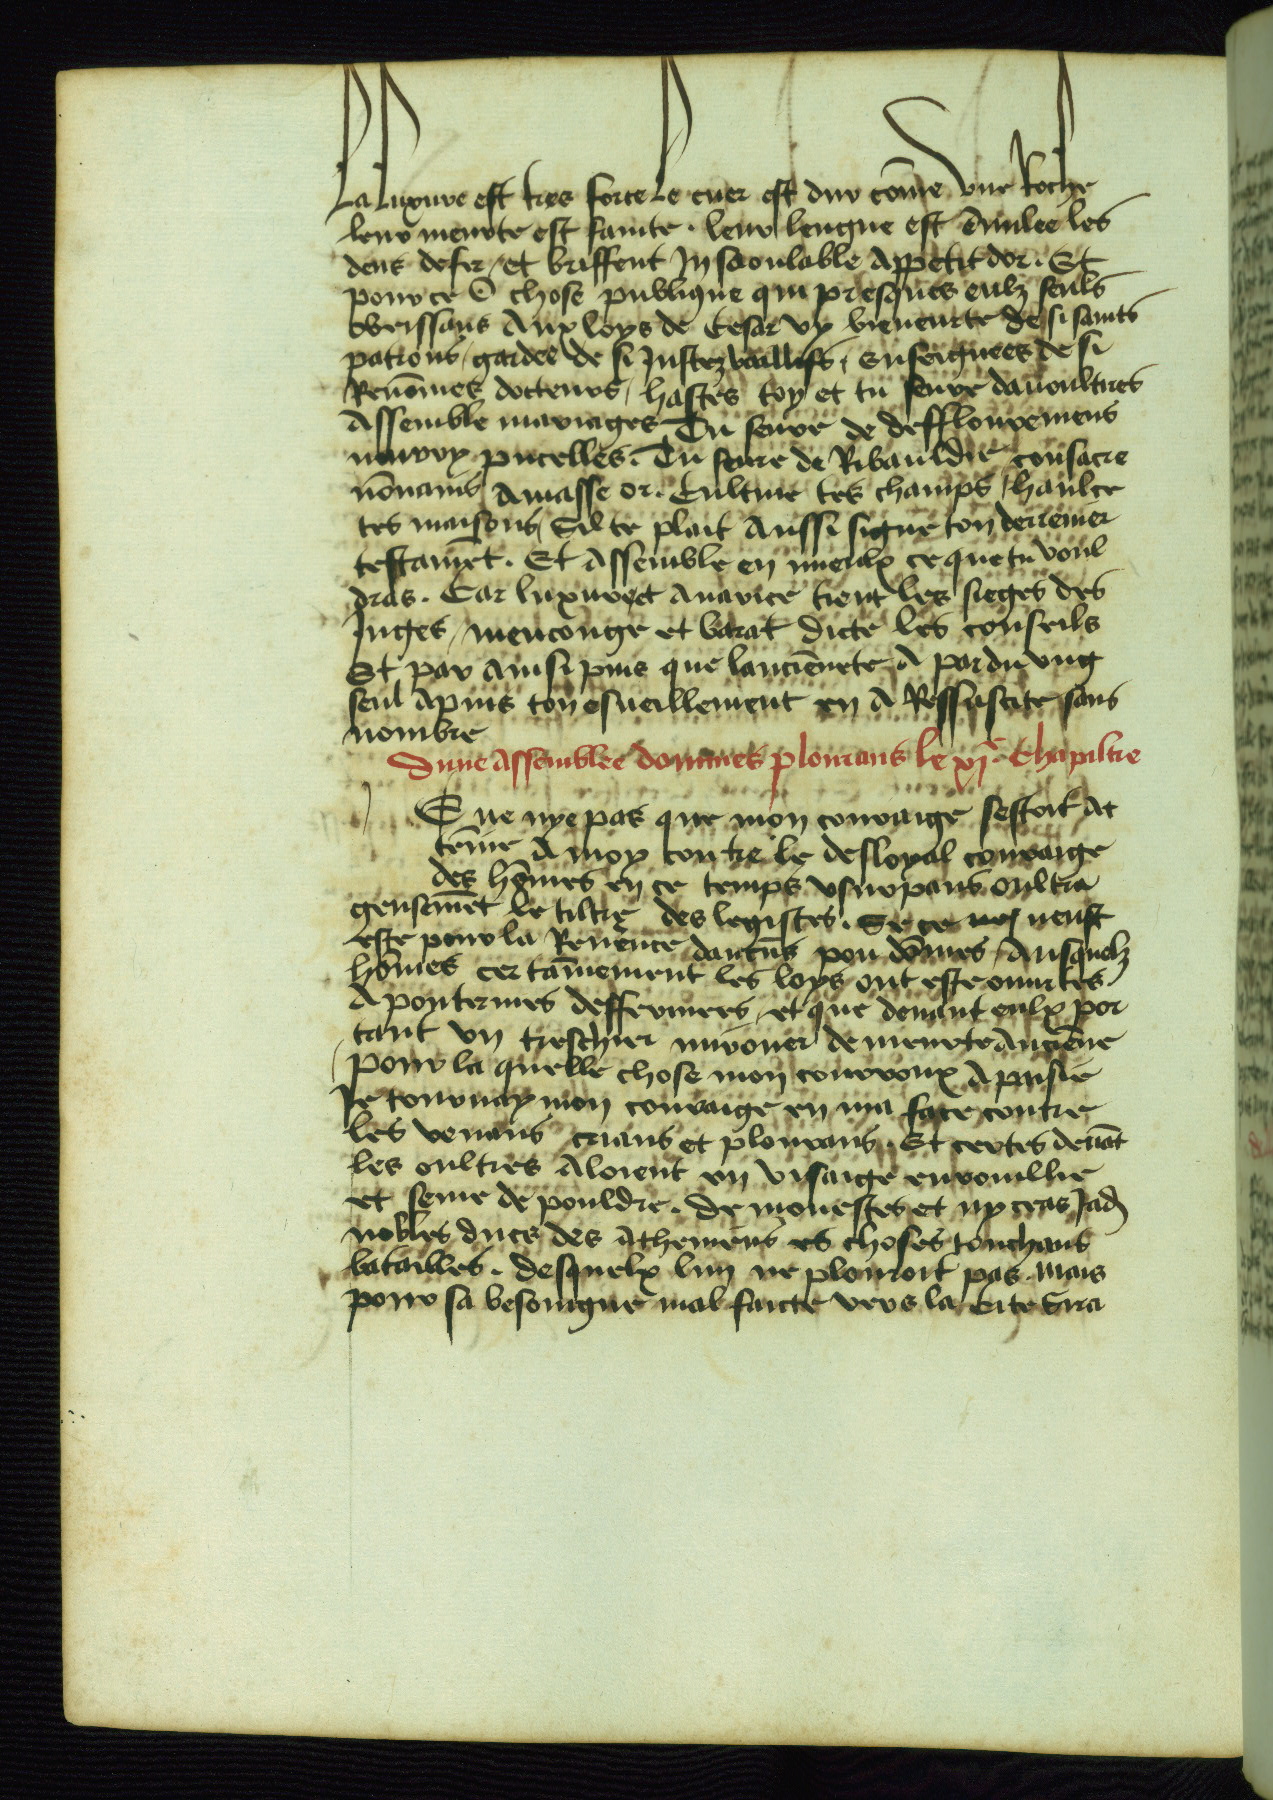 La luxure est tres forte le cuer est dur cōme vne Roche
leur meurte est fainte . leur lengue est Amlee les
dens de fer / et briffent Jnsaoulable Appetit dor . Et
pour ce O chose publique qui presques eulz seuls
obeissans Aux loys de Cesar vy bieneurte de si saints
patrons / gardee de si Justez baillifs / Enseignees de si
Renōmes docteurs / hastes toy et tu seure dauoultires
Assemble mariages Tu seure de defflouremens
nourry pucelles . Tu seure de Ribauldie consacre
nōnains Amasse or . Cultiue tes champs / haulce
tes maisons / Sil te plait Aussi signe ton derrenier
testamēt . Et Assemble en mieulx ce que tu voul
dras . Car luxure et Auarice tient les sieges des
Juges / menconge et barat dicte les conseils
Et par ainsi puis que lanciēnete A pardu vng
seul Apius ton esueillement en A Ressuscite sans
nombre
Dune Assemblee dommes plourans le xjᵉ. Chapiltre
Je ne nye pas que mon couraige sestoit At
temie A moy contre le desloyal couraige
des hōmes en ce temps vsurpans oultra
geusemēt le tiltre des legistes . Se ce neust
este pour la Reuēnce daucūs pou dōmes / Ausquelz
hōmes certainement les loys ont este ouurtes
A pou termes deffermees / et que deuant eulx por
tant vn treschier mirouer de meurte Anciēne
Pour la quelle chose mon courroux Apaisie
Je tournay mon couraige en ma face contre
les venans crians et plourans . Et certes deuāt
les oultres Aloient en visaige enrouillie
et seme de pouldre . demonestes et nyceas Jad
nobles ducs des Atheniens es choses touchans
batailles . desquelx lun ne plouroit pas . mais
pour sa besoingne mal faicte vers la Cite Sira